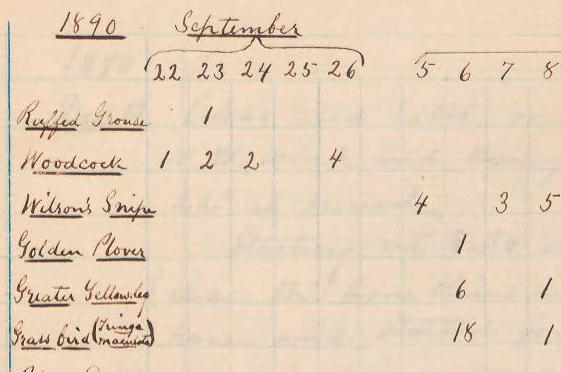 1890 September
22 23 24 25 26 5 6 7 8
Ruffed Grouse 1
Woodcock 1 2 2 4
Wilson's Snipe 4 3 5
Golden Plover 1
Greater Yellowleg 6 1
Grass bird (Tringa maculata) 18 1